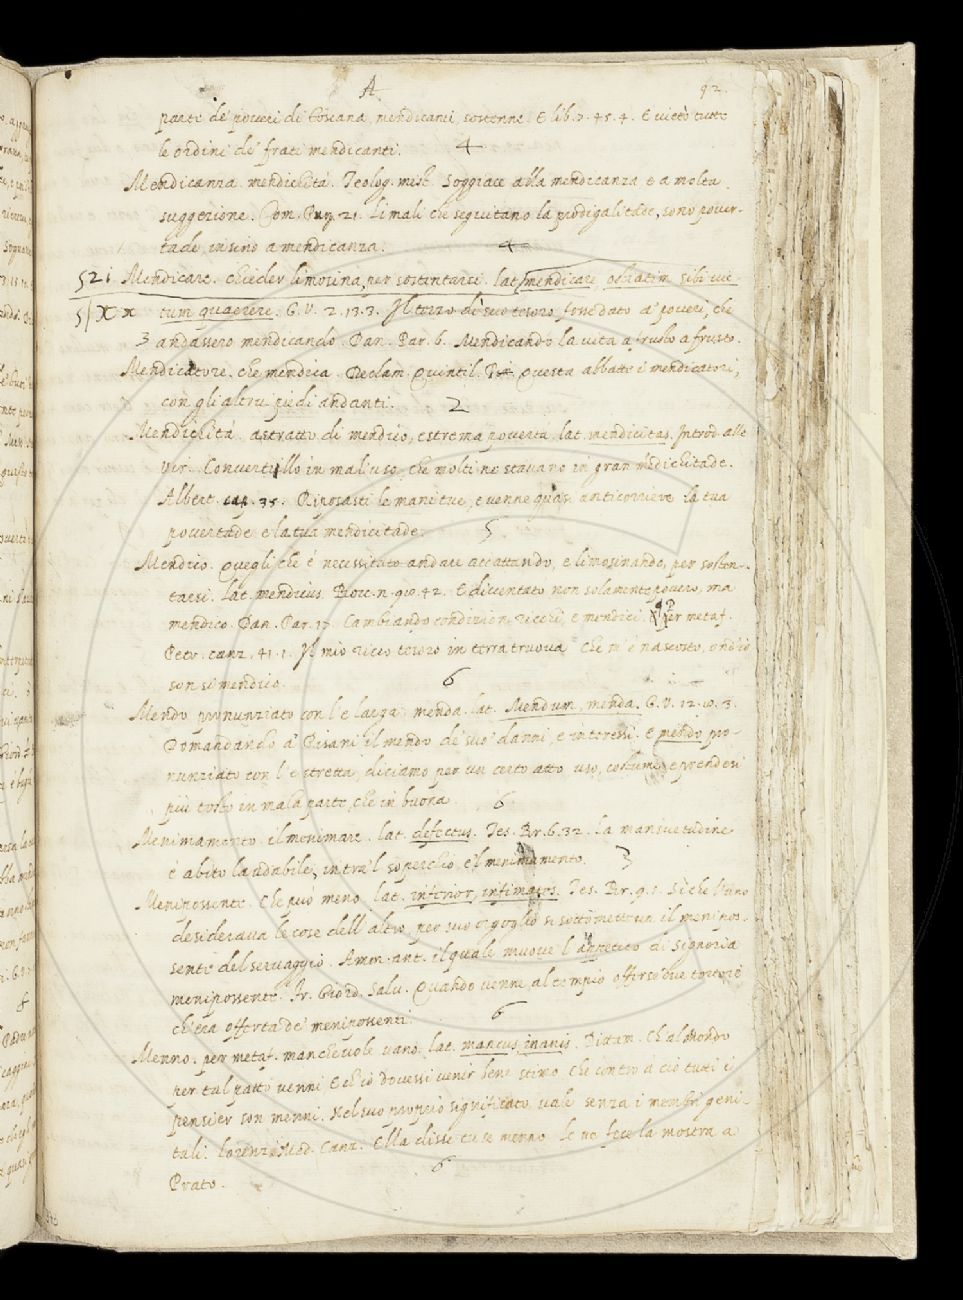 A 92.
parte de' poveri di Toscana, mendicanti, sostenne. E lib. 7. 45. 4. E vietò tutte
le ordini de' frati mendicanti. 4
Mendicanza. mendichità. Teolog. mist. Soggiace alla mendicanza e a molta
suggezione. Com. Purg. 21. Li mali che seguitano la prodigalitade, sono pover-
tade, insino a mendicanza. 4
521 Mendicare. chieder limosina, per sostentarsi. lat. mendicare ostiatim sibi vic-
5/ X x tum quaerere. G. V. 2. 13. 3. Il terzo di suo tesoro fosse dato a' poveri, che
3 andassero mendicando. Dan. Par. 6. Mendicando la vita a frusto a frusto.
Mendicatore. che mendica. Declam. Quintil. Questa abbatte i mendicatori,
con gli altrui piedi andanti. 2
Mendichità. astratto di mendico, estrema povertà. lat. mendicitas. Introd. alle
vir. Convertillo in mal'uso, che molti ne stavano in gran mendichitade.
Albert. cap. 35. Riposasti le mani tue, e venne quasi anticorriere la tua
povertade e la tua mendicitade. 5
Mendico. quegli che è necessitato andare accattando, e limosinando, per sosten-
tarsi. lat. mendicus. Bocc. n. 42. E diventato non solamente povero, ma
mendico. Dan. Par. 17. Cambiando condizion ricchi, e mendici. Per metaf.
Petr. canz. 41. 1. Il mio ricco tesoro in terra truova Che m'è nascosto, ond'io
son sì mendico. 6
Mendo pronunziato con l'e larga. menda. lat. Mendum, menda. G. V. 12. 10. 3.
Domandando a' Pisani il mendo de' suoi danni, e interessi. E mendo pro-
nunziato con l'e stretta, diciamo per un certo atto, uso, costume, e prendesi
più tosto in mala parte, che in buona. 6
Menimamento. il menimare. lat. defectus. Tes. Br. 6. 32. La mansuetudine
è abito laudabile, intra'l soperchio, e'l menimamento. 3
Menipossente. Che può meno. lat. inferior, Tes. Br. 9. 1. Sì che l'uno
desiderava le cose dell'altro, per suo orgoglio si sottomettevan il menipos-
sente del servaggio. Amm. ant. il quale muove l'appetito di signoria
menipossente. Fr. Giord. Salv. Quando venne al tempio offerse due tortore
ch'era offerta de' menipossenti. 6
Menno. per metaf. manchevole vano. lat. mancus, inanis. Dittam. Ch'al Mondo
per tal patto venni, E ch'io dovessi venir bene stimo Che contro a ciò tutti i
pensier son menni. Nel suo proprio significato, vale senza i membri geni-
tali. Lorenzo Med. Canz. Ella disse tu se' menno Io ne feci la mostra a
Prato. 6